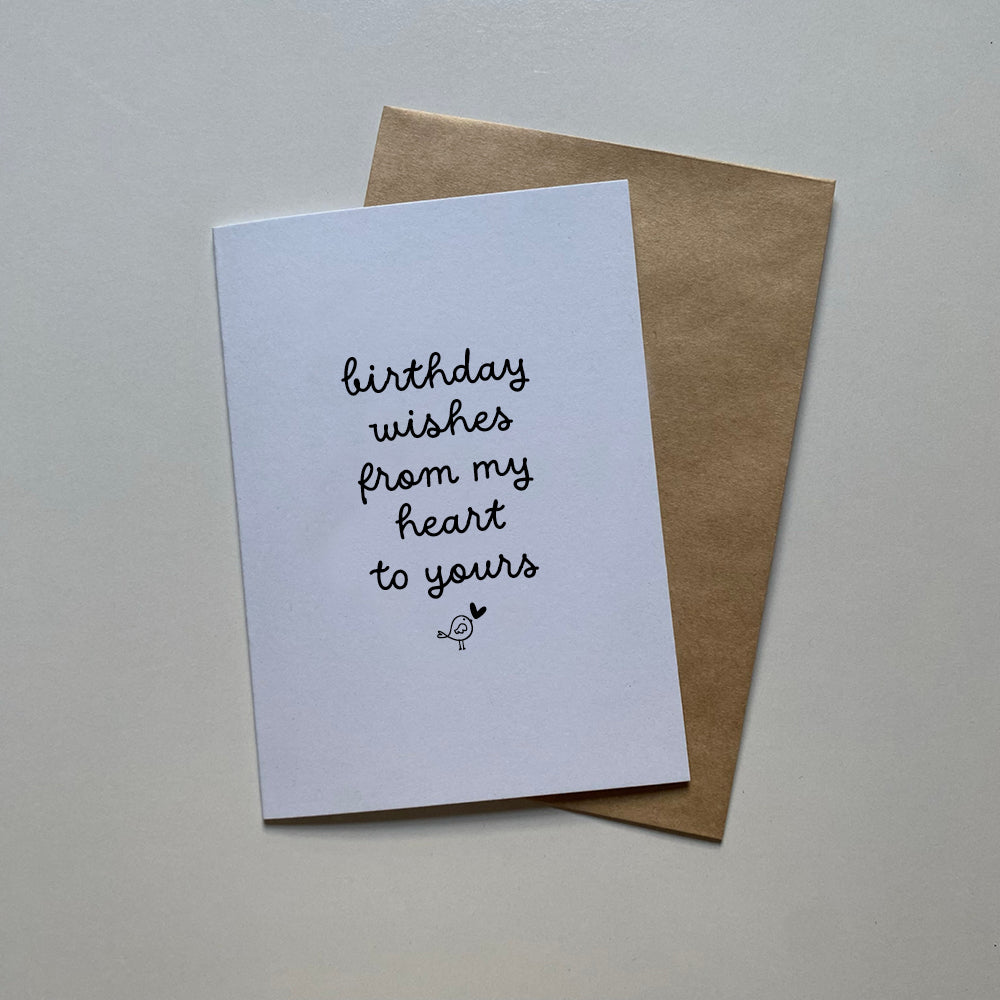 birthday
wishes
from my
heart
to yours